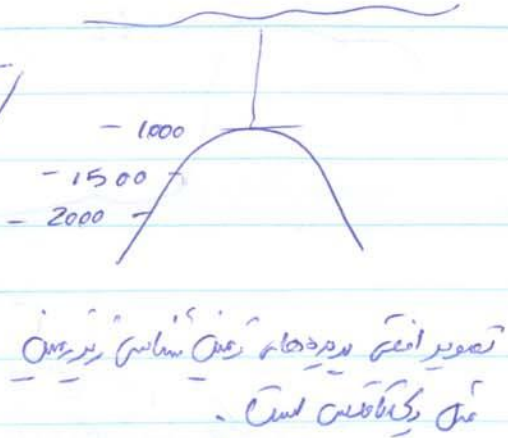 - 1000
- 1500
- 2000
تصویر افقی پدیده‌های زمین شناسی زیرزمین
مثل یک تاقدیس است .